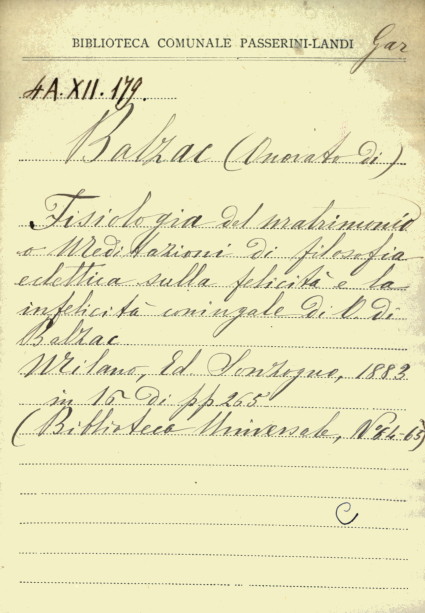 BIBLIOTECA COMUNALE PASSERINI-LANDI Gar
4A.XII.179.
Balzac (Onorato di)
Fisiologia del matrimonio
o Meditazioni di filosofia
eclettica sulla felicità e la
infelicità coniugale di O. di
Balzac
Milano, Ed. Sonzogno, 1883
in 16 di pp 265
(Biblioteca Universale, No 64-65)
C